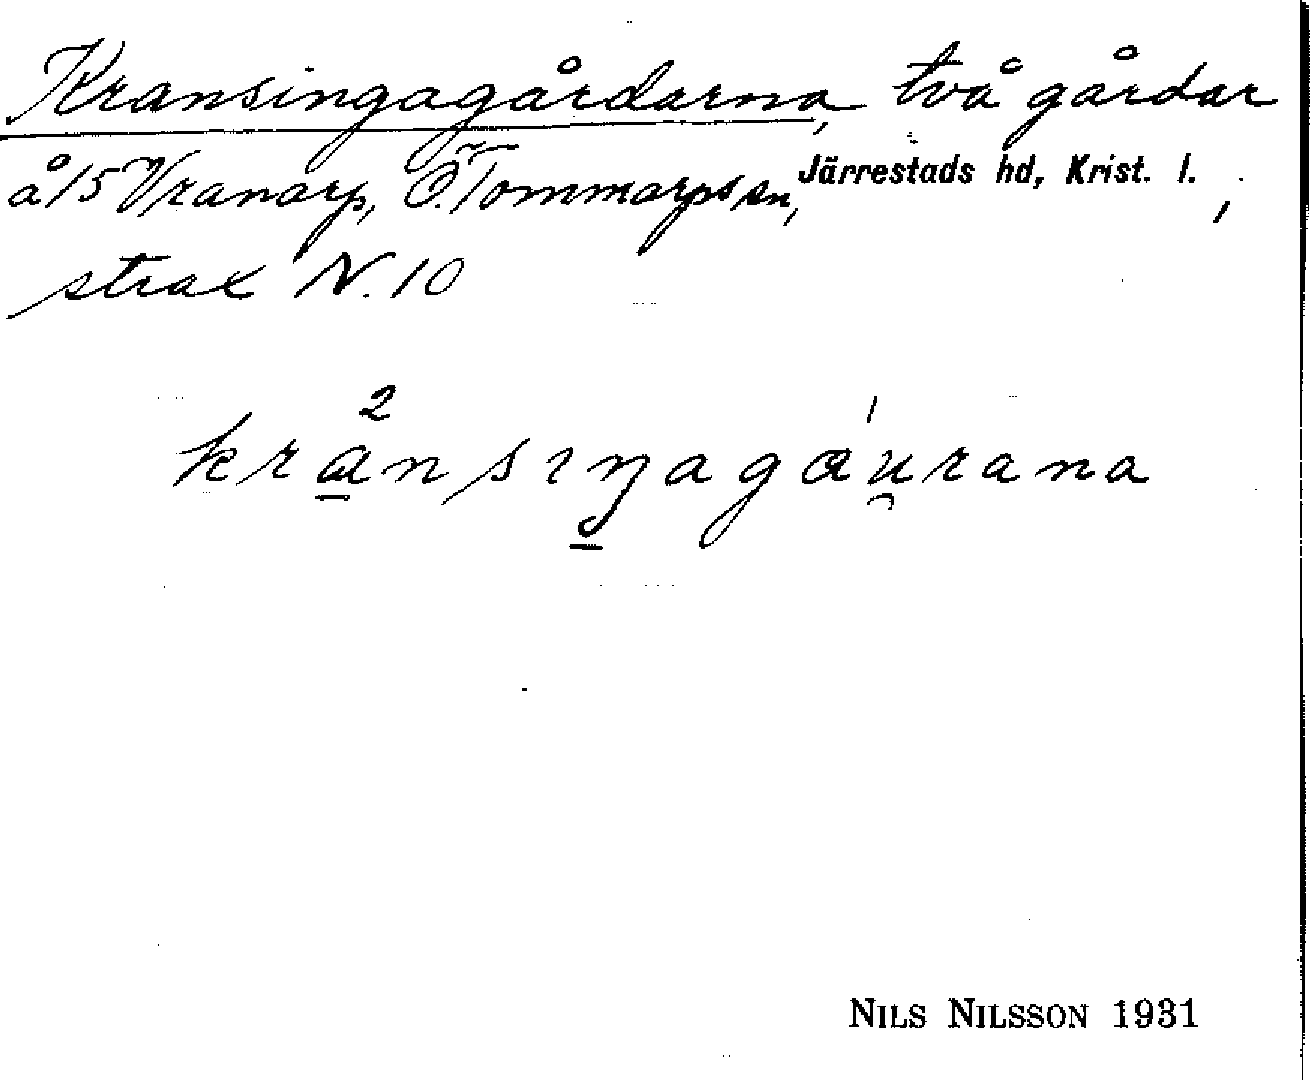 Kransingagårdarna, två gårdar
å 15 Vranarp, Ö. Tommarps sn, Järrestads hd, Krist. l.,
strax N. 10
kransiŋagáu̯rana
NILS NILSSON 1931